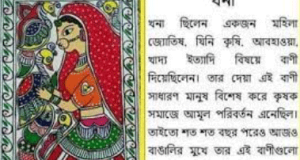 খনা
খনা ছিলেন একজন মহিলা
জ্যোতিষ, যিনি কৃষি, আবহাওয়া,
খাদ্য ইত্যাদি বিষয়ে বাণী
দিয়েছিলেন। তার দেয়া এই বাণী
সাধারণ মানুষ বিশেষ করে কৃষক
সমাজে আমূল পরিবর্তন এনেছিল।
তাইতো শত শত বছর পরেও আজও
বাঙালির মুখে তার এই বাণীগুলো